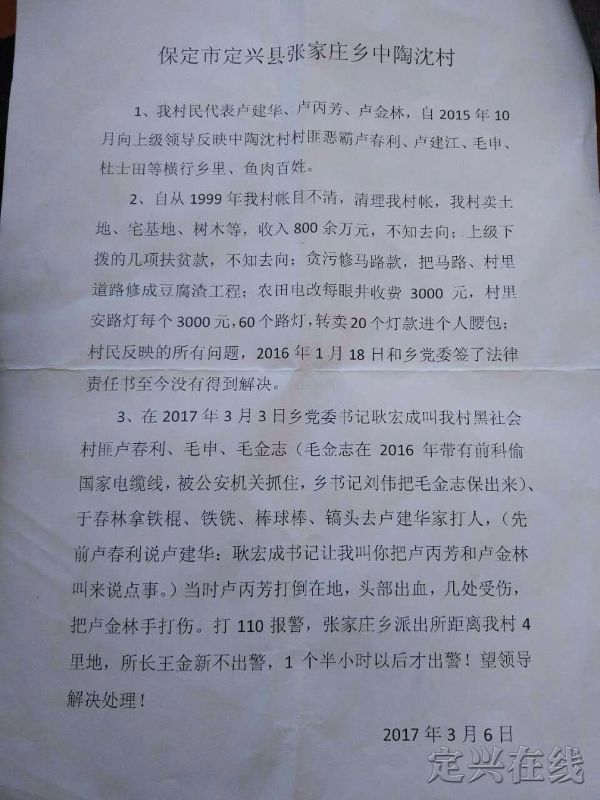 保定市定兴县张家庄乡中陶沈村
1、我村民代表卢建华、卢丙芳、卢金林，自 2015 年 10
月向上级领导反映中陶沈村村匪恶霸卢春利、卢建江、毛申、
杜士田等横行乡里、鱼肉百姓。
2、自从 1999 年我村帐目不清，清理我村帐，我村卖土
地、宅基地、树木等，收入 800 余万元，不知去向；上级下
拨的几项扶贫款，不知去向；贪污修马路款，把马路、村里
道路修成豆腐渣工程；农田电改每眼井收费 3000 元，村里
安路灯每个 3000 元，60 个路灯，转卖 20 个灯款进个人腰包；
村民反映的所有问题，2016 年 1 月 18 日和乡党委签了法律
责任书至今没有得到解决。
3、在 2017 年 3 月 3 日乡党委书记耿宏成叫我村黑社会
村匪卢春利、毛申、毛金志（毛金志在 2016 年带有前科偷
国家电缆线，被公安机关抓住，乡书记刘伟把毛金志保出来）、
于春林拿铁棍、铁铣、棒球棒、镐头去卢建华家打人，（先
前卢春利说卢建华：耿宏成书记让我叫你把卢丙芳和卢金林
叫来说点事。）当时卢丙芳打倒在地，头部出血，几处受伤，
把卢金林手打伤。打 110 报警，张家庄乡派出所距离我村 4
里地，所长王金新不出警，1 个半小时以后才出警！望领导
解决处理！
2017 年 3 月 6 日
定兴在线